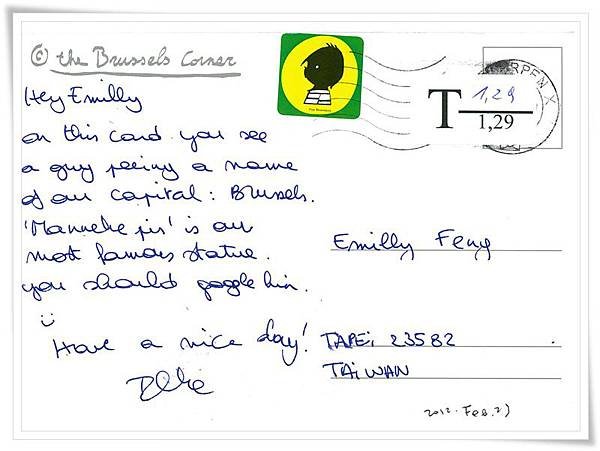 © the Brussels Corner
Hey Emilly
on this card you see
a guy peeing a name
of our capital: Brussels.
'Manneke pis' is our
most famous statue.
you should google him.
Have a nice day!
T 1,29
1,29
RPEN X
Emilly Feng
TAPEi 23582
TAiWAN
2012. Feb.